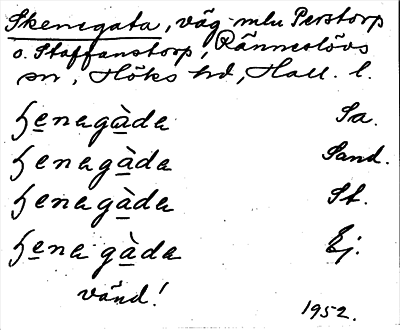 Skenegata, väg mlu Perstorp
o. Staffanstorp, Ränneslövs
sn, Höks hd, Hall. l.
ɧenagàda Sa.
ɧenagàda Sand.
ɧenagàda St.
ɧena gàda Ej.
vänd!
1952.